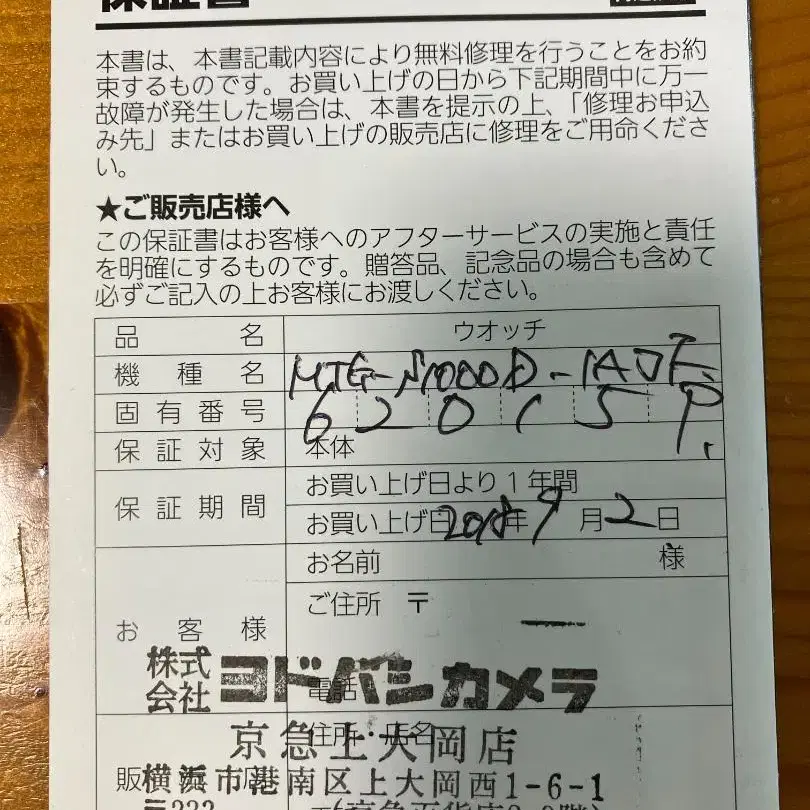 保証書
本書は、本書記載内容により無料修理を行うことをお約
束するものです。お買い上げの日から下記期間中に万一
故障が発生した場合は、本書を提示の上、「修理お申込
み先」またはお買い上げの販売店に修理をご用命くださ
い。
★ご販売店様へ
この保証書はお客様へのアフターサービスの実施と責任
を明確にするものです。贈答品、記念品の場合も含めて
必ずご記入の上お客様にお渡しください。
品名 ウオッチ
機種名 MTG-S1000D-1AJF
固有番号 62015P
保証対象 本体
保証期間 お買い上げ日より1年間
お買い上げ日 2018年9月2日
お客様 お名前 様
ご住所 〒
電話
株式会社ヨドバシカメラ
住所・店名
京急上大岡店
販
横浜市港南区上大岡西1-6-1
〒233